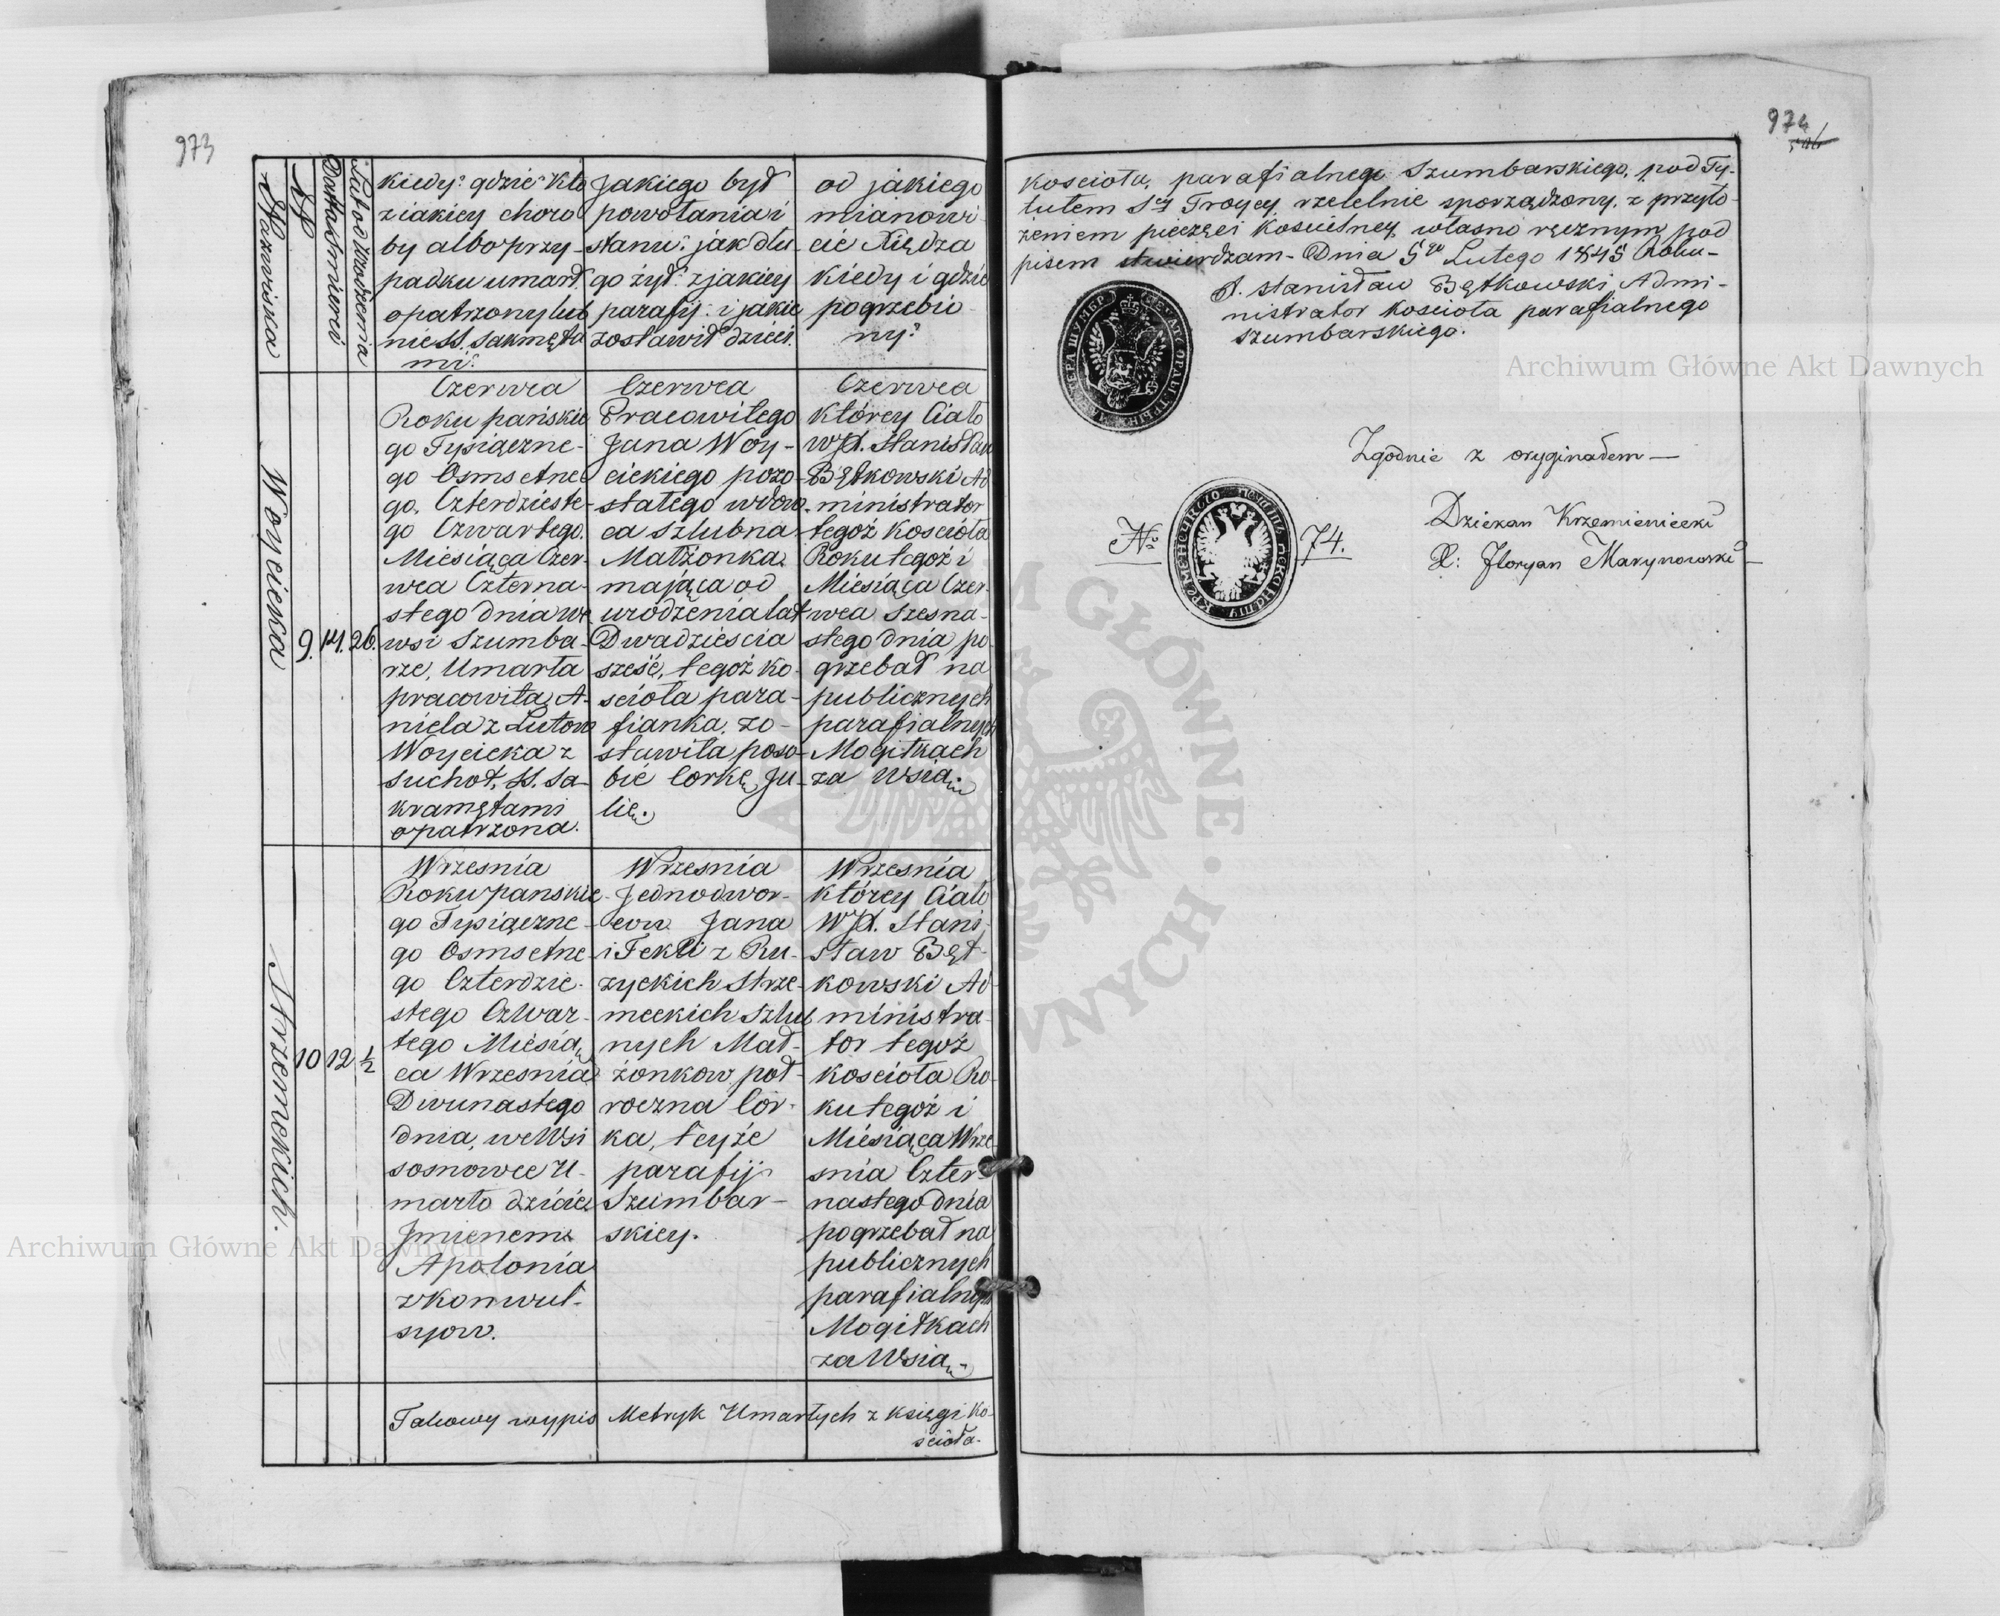 973
Nazwiska
N
Data śmierci
Lata od urodzenia
kiedy? gdzie? kto
z iakiey choro
by albo przy-
padku umarł.
opatrzony lub
nie SS. sakmęta
mi?
Jakiego był
powołania i
stanu? jak dłu
go żył? z jakiey
parafij: i jakie
zostawił dzieci.
od jakiego
mianowi-
cie Xiędza
kiedy i gdzie
pogrzebio-
ny?
Woyciecka
9.
14.
26.
Czerwca
Roku pańskie
go Tysiączne-
go Osmsetne
go, Czterdzieste-
go Czwartego.
Miesiąca Czer-
wca Czterna-
stego dnia we
wsi Szumba-
rze, Umarła
pracowita A-
niela z Lutow
Woycicka z
suchot, SS. Sa-
kramętami
opatrzona.
Czerwca
Pracowitego
Jana Woy-
cickiego pozo-
stałego wdow
ca szlubna
Małżonka,
mająca od
urodzenia lat
Dwadzieścia
sześć, tegoż ko-
scioła para-
fianka, zo-
stawiła poso-
bie Corkę Ju-
lię.
Czerwca
którey Ciało
WJX. Stanisław
Bętkowski Ad
ministrator
tegoż kościoła
Roku tegoż i
Miesiąca Czer-
wca szesna-
stego dnia po-
grzebał na
publicznych
parafialnych
Mogiłkach
za wsią.
Strzemeckich.
10
12
1/2
Wrzesnia
Roku panskie-
go Tysiączne-
go Osmsetne-
go Czterdzie-
stego Czwar-
tego Miesią
ca Wrzesnia
Dwunastego
dnia, we Wsi
sosnowce U-
marło dziécie
Jmieniem
Apolonia
z konwul-
syow.
Wrzesnia
Jednodwor-
cow Jana
i Tekli z Ru-
zyckich Strze-
meckich szlub
nych Mał-
żonkow poł-
roczna Cór-
ka, teyże
parafij
Szumbar-
skiey.
Wrzesnia
którey Ciało
WJX. Stani-
sław Bęt-
kowski Ad
ministra-
tor tegoż
kościoła Ro-
ku tegoż i
Miesiąca Wrze-
snia Czter-
nastego dnia
pogrzebał na
publicznych
parafialnych
Mogiłkach
za Wsią.
Takowy wypis Metryk Umarłych z księgi ko-
ścioła-
974
kościoła, parafialnego Szumbarskiego, pod Ty-
tułem Sey Troycy rzetelnie sporządzony, z przyło-
żeniem pieczęci kościelney własno ręcznym pod
pisem stwierdzam- Dnia 5go Lutego 1845 Roku-
X. Stanisław Bętkowski Admi-
nistrator kościoła parafialnego
Szumbarskiego.
Zgodnie z oryginałem—
Dziekan Krzemieniecki
X: Floryan Marynowski
No 74.
Archiwum Główne Akt Dawnych
Archiwum Główne Akt Dawnych